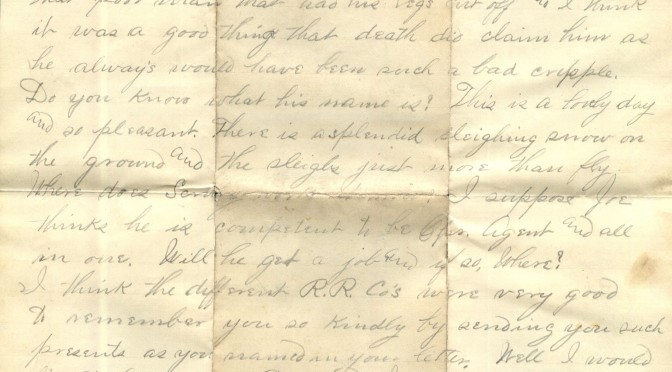 that poor man that had his legs cut off and I think
it was a good thing that death did claim him as
he always would have been such a bad cripple.
Do you know what his name is? This is a lovely day
and so pleasant. There is a splendid sleighing snow on
the ground and the sleighs just more than fly.
Where does I suppose Joe
thinks he is competent to be Opr. Agent and all
in one. Will he get a job and if so, Where?
I think the different R.R. Co's were very good
to remember you so kindly by sending you such
presents as you named in your letter. Well I would